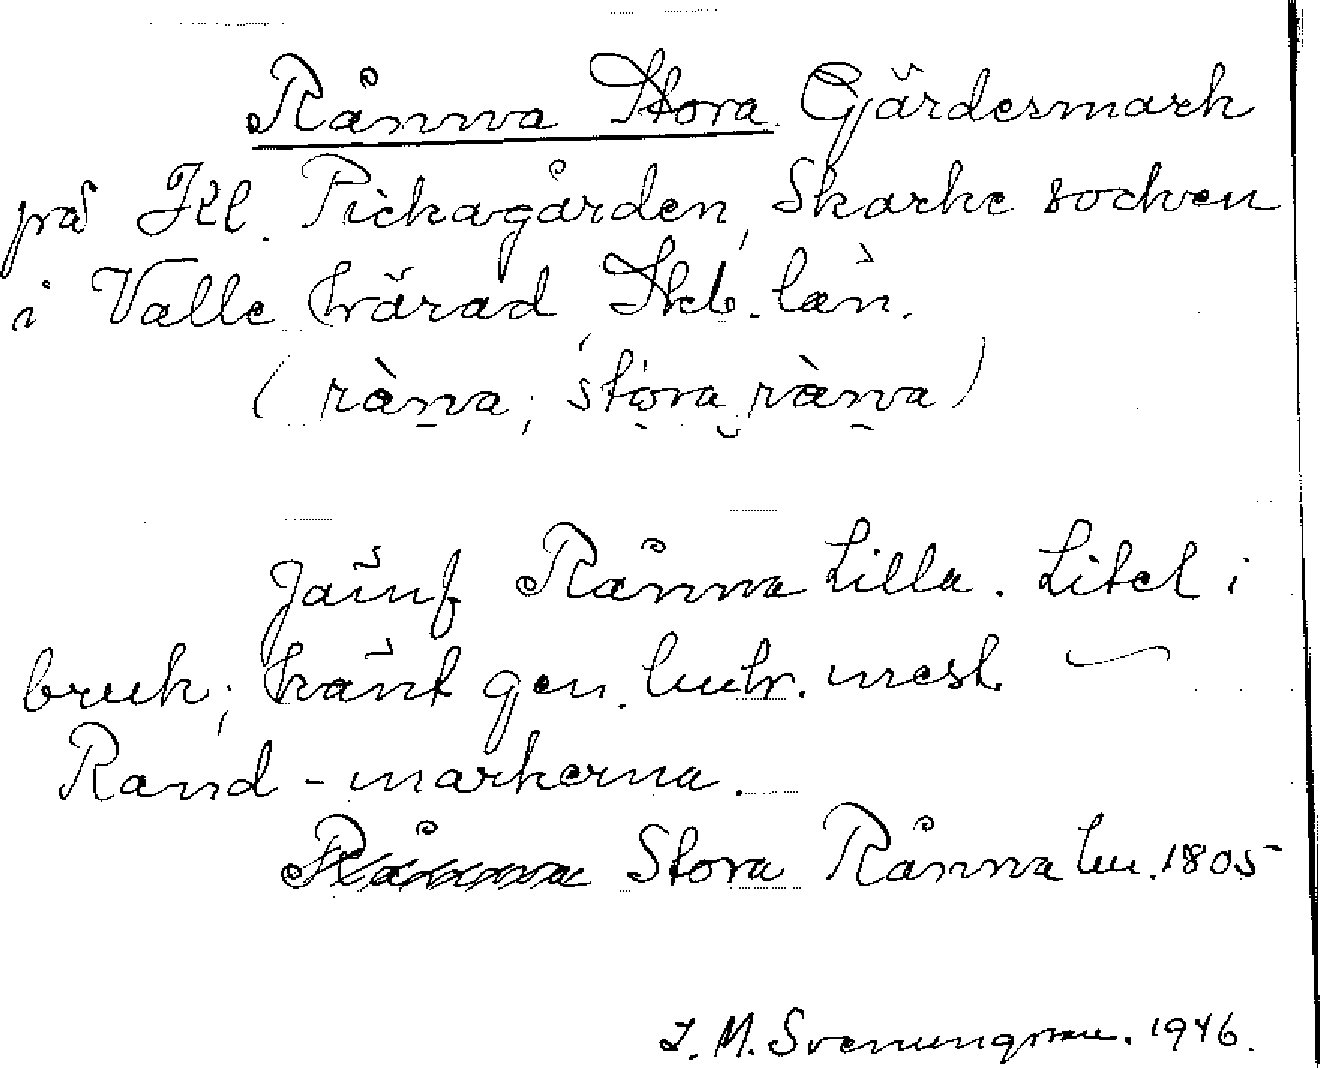 Rånna Stora Gärdesmark
på Kl. Pickagården, Skarke socken
i Valle härad, Skb. län.
(ràna; stora ràna)
Jämf Rånna Lilla. Litet i
bruk; känt gen. lmhr. mest
Rand-markerna.
Stora Rånna lm. 1805
I. M. Svenungsson. 1946.